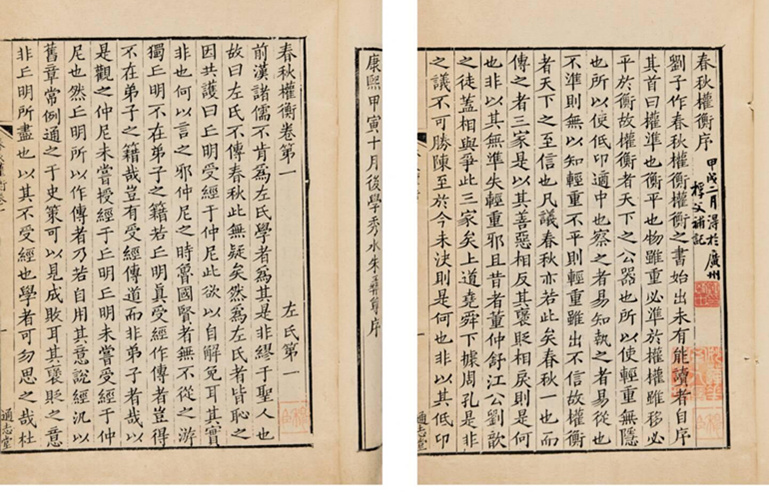 春秋權衡序
甲戌二月得於廣州
補記
劉子作春秋權衡權衡之書始出未有能讀者自序
其首曰權準也衡平也物雖重必準於權權雖移必
平於衡故權衡者天下之公器也所以使輕重無隱
也所以使低卬適中也察之者易知執之者易從也
不準則無以知輕重不平則輕重雖出不信故權衡
者天下之至信也凡議春秋亦若此矣春秋一也而
傳之者三家是以其善惡相反其襃貶相戾則是何
也非以其無準失輕重邪且昔者董仲舒江公劉歆
之徒蓋相與爭此三家矣上道堯舜下據周孔是非
之議不可勝陳至於今未決則是何也非以其低卬
通志堂
康熙甲寅十月後學秀水朱彝尊序
春秋權衡卷第一
左氏第一
前漢諸儒不肯爲左氏學者爲其是非繆于聖人也
故曰左氏不傳春秋此無疑矣然爲左氏者皆恥之
因共護曰丘明受經于仲尼此欲以自解免耳其實
非也何以言之邪仲尼之時魯國賢者無不從之游
獨丘明不在弟子之籍若丘明眞受經作傳者豈得
不在弟子之籍哉豈有受經傳道而非弟子者哉以
是觀之仲尼未嘗授經于丘明丘明未嘗受經于仲
尼也然丘明所以作傳者乃若自用其意說經汎以
舊章常例通之于史策可以見成敗耳其襃貶之意
非丘明所盡也以其不受經也學者可勿思之哉杜
通志堂